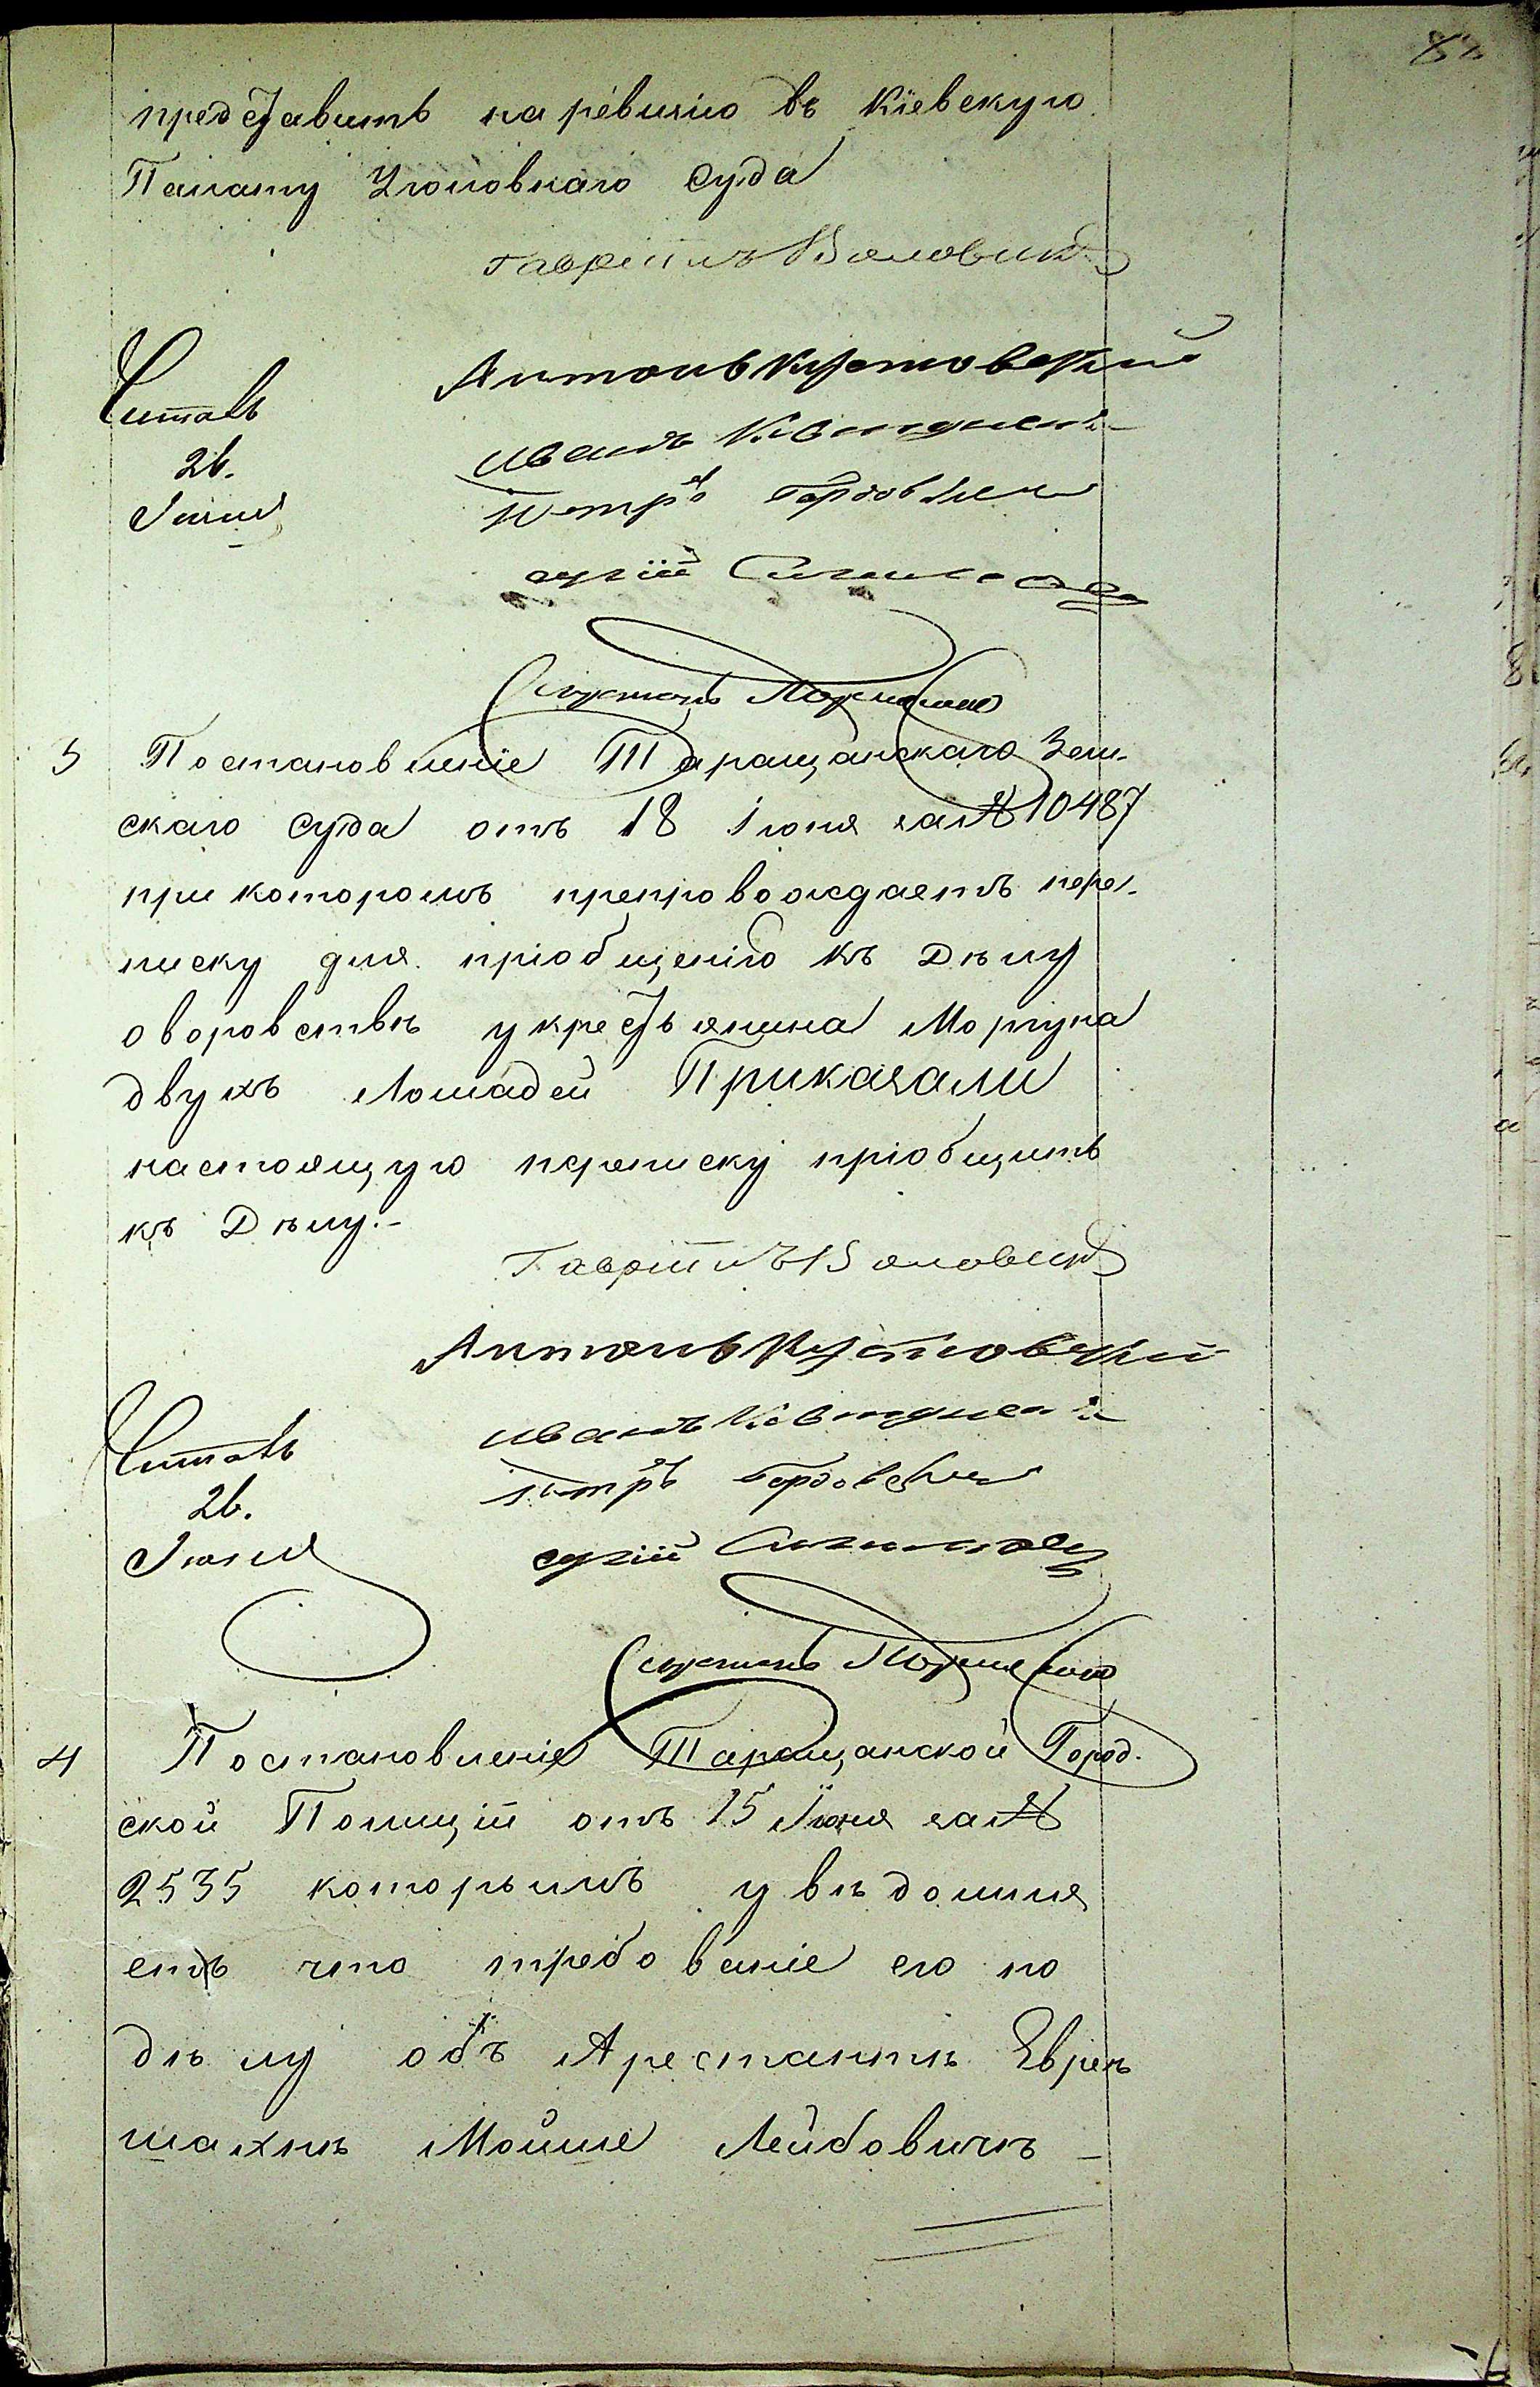 представить на ревизію въ Кіевскую
Палату Уголовнаго Суда
Гавріилъ
Антонъ
Читалъ
Иванъ
26.
Петръ
Іюня
Сергій
3 Постановленіе Таращанскаго Зем-
скаго Суда отъ 18 Іюня за № 10487
при которомъ препровождаетъ пере-
писку для пріобщенію къ Дѣлу
о воровствѣ у крестьянина Моргуна
двухъ Лошадей Приказали
настоящую переписку пріобщить
къ Дѣлу.-
Гавріилъ
Антонъ
Читалъ
Иванъ
26.
Петръ
Іюня
Сергій
4 Постановленіе Таращанской Город-
ской Полиціи отъ 15 Іюня за №
2535 которымъ увѣдомля
етъ что требованіе его по
дѣлу объ Арестантѣ Евреѣ
Шахнѣ Мойше Лейбовичѣ